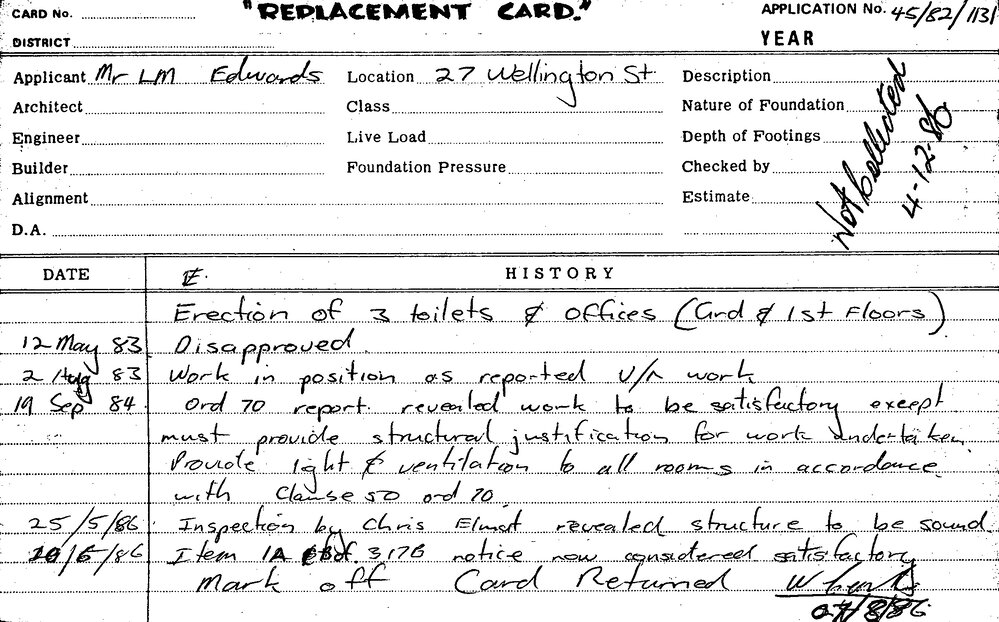 CARD No.
"REPLACEMENT CARD."
APPLICATION No. 45/82/1131
DISTRICT
YEAR
Applicant Mr LM Edwards
Location 27 Wellington St
Description
Architect
Class
Nature of Foundation
Engineer
Live Load
Depth of Footings
Builder
Foundation Pressure
Checked by
Alignment
Estimate
D.A.
Not Collected
4-12-86
DATE
HISTORY
Erection of 3 toilets & offices (Grd & 1st Floors)
12 May 83 Disapproved.
2 Aug 83 Work in position as reported U/A work
19 Sep 84 Ord 70 report revealed work to be satisfactory except
must provide structural justification for work undertaken
Provide light & ventilation to all rooms in accordance
with Clause 50 ord 70
25/5/86 Inspection by Chris revealed structure to be sound
/86 Item 1A 317B notice now considered satisfactory
Mark off Card Returned
/8/86